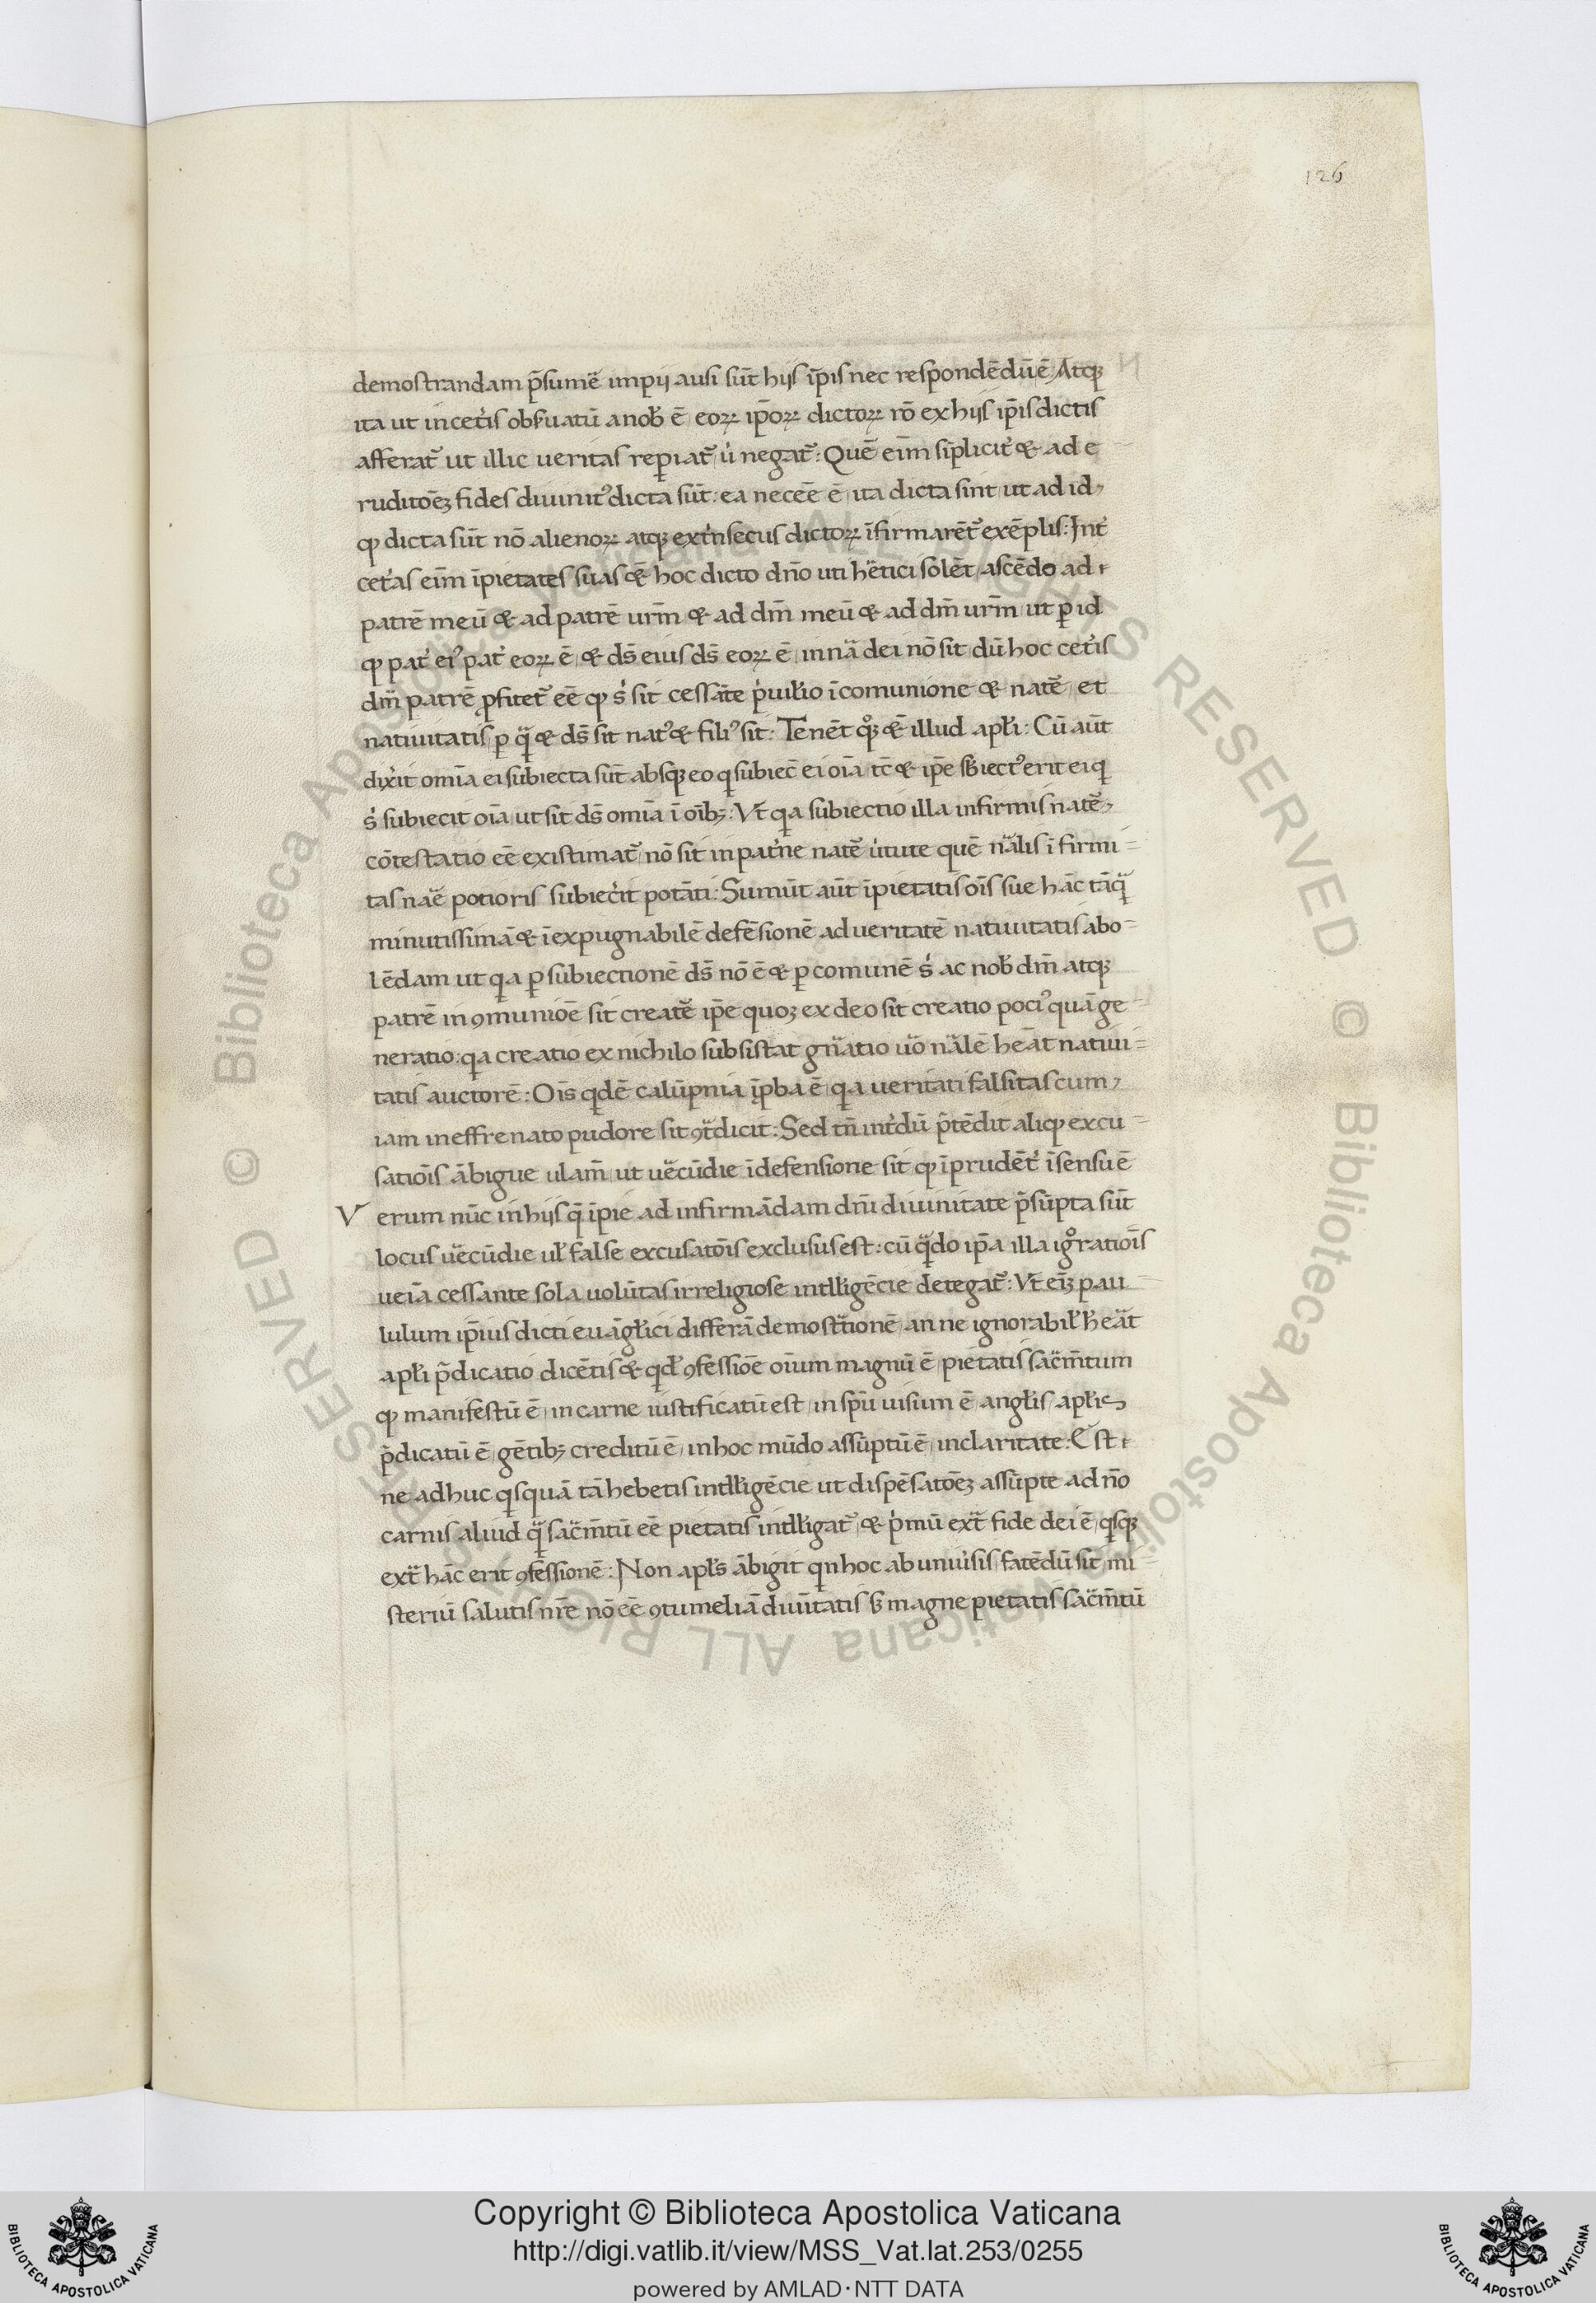 126
demostrandam p̄sume᷒ impij ausi sūt hijs īpis nec respondēdū ē Atqꝫ
ita ut in cet᷒is obs̄uatū a nob̄ ē eoꝝ ip̄oꝝ dictoꝝ rō ex hijs ip̄is dictis
afferat᷒ ut illic ueritas rep̲iat᷒ u᷒ negat᷒: Quē eīm sīplicit᷒ & ad e
ruditōeꝫ fides diuinit᷒ dicta sūt: ea necēe ē ita dicta sint ut ad id
qꝫ dicta sūt nō alienoꝝ atqꝫ ext᷒nsecus dictoꝝ īfirmarēt᷒ exēplis: Int᷒
cet᷒as eīm īpietates suas & hoc dicto dn̄o uti he᷒tici solēt ascēdo ad
patrē meū & ad patrē urm̄ & ad dm̄ meū & ad dm̄ urm̄ ut p̲ id
qꝫ pat᷒ ei᷒ pat᷒ eoꝝ ē & ds̄ eius ds̄ eoꝝ ē in nā dei nō sit dū hoc cet᷒is
dm̄ patrē ꝓfitet᷒ eē qꝫ s᷒ sit cessāte p᷒uilīo ī comunione & natē et
natiuitatis p̲ qā & ds̄ sit nat᷒ & fili᷒ sit: Tenēt qoꝫ & illud apl̄i: Cū aūt
dix᷒it omīa ei subiecta sūt absqꝫ eo q subiec̄ ei oīa tc̄ & ip̄e sbiect᷒ erit ei q
s᷒ subiecit oīa ut sit ds̄ omīa ī oībꝫ: Vt̄ qa subiectio illa infirmis natē
cōtestatio eē existimat᷒ nō sit in pat᷒ne natē u᷒tute quē nālis ī firmi
tas nāe potioris subiec᷒it potāti: Sumūt aūt īpietatis oīs sue hāc tāqā
minutissimā & īexpugnabilē defēsionē ad ueritatē natiuitatis abo
lēdam ut qa p̲ subiectionē ds̄ nō ē & p̲ comunē s᷒ ac nob̄ dm̄ atqꝫ
patrē in ꝯmuniōe sit creatē ip̄e quoꝫ ex deo sit creatio poci᷒ quā ge
neratio: qa creatio ex nichilo subsistat gn̄atio uō nālē heāt natiui
tatis auctorē: Oīs qdē calūpnia īp̲ba ē qa ueritati falsitas cum
iam in effrenato pudore sit ꝯt᷒dicit: Sed tn̄ int᷒dū p̄tēdit aliqꝫ excu
satiōis ābigue ulam̄ ut ue᷒cūdie ī defensione sit qꝫ īprudēt᷒ ī sensu ē
Verum nūc in hijs q̄ īpie ad infirmādam dn̄i diuinitate p̄sūpta sūt
locus ue᷒cūdie ul̄ false excusatōis exclusus est: cū qādo ip̄a illa igoratiōis
ueīa cessante sola uolūtas irreligiose intell̄igēcie detegat᷒: Vt̄ eīꝫ pau
lulum ip̄ius dicti euāgl̄ici differā demost᷒tionē an ne ignorabil̄ heāt
apl̄i p̄dicatio dicētis & qd̄ ꝯfessiōe oīum magnū ē pietatis sac᷒m̄tum
qꝫ manifestū ē in carne iustificatū est in spū uisum ē angl̄is apl̄ic
p̄dicatū ē gētibꝫ creditū ē in hoc mūdo assūptū ē in claritate: Est
ne adhuc qsquā tā hebetis intell̄igēcie ut dispēsatōeꝫ assūpte a dn̄o
carnis aliud qā sac᷒m̄tū eē pietatis intell̄igat᷒ & p᷒mū ext᷒ fide dei ē qsqꝫ
ext᷒ hāc erit ꝯfessionē: Non apl̄s ābigit qn hoc ab uniu᷒sis fatēdū sit mi
steriū salutis nr̄e nō eē ꝯtumeliā diuīitatis s᷒ magne pietatis sac᷒m̄tū
Copyright © Biblioteca Apostolica Vaticana
http://digi.vatlib.it/view/MSS_Vat.lat.253/0255
powered by AMLAD·NTT DATA
BIBLIOTECA APOSTOLICA VATICANA
BIBLIOTECA APOSTOLICA VATICANA